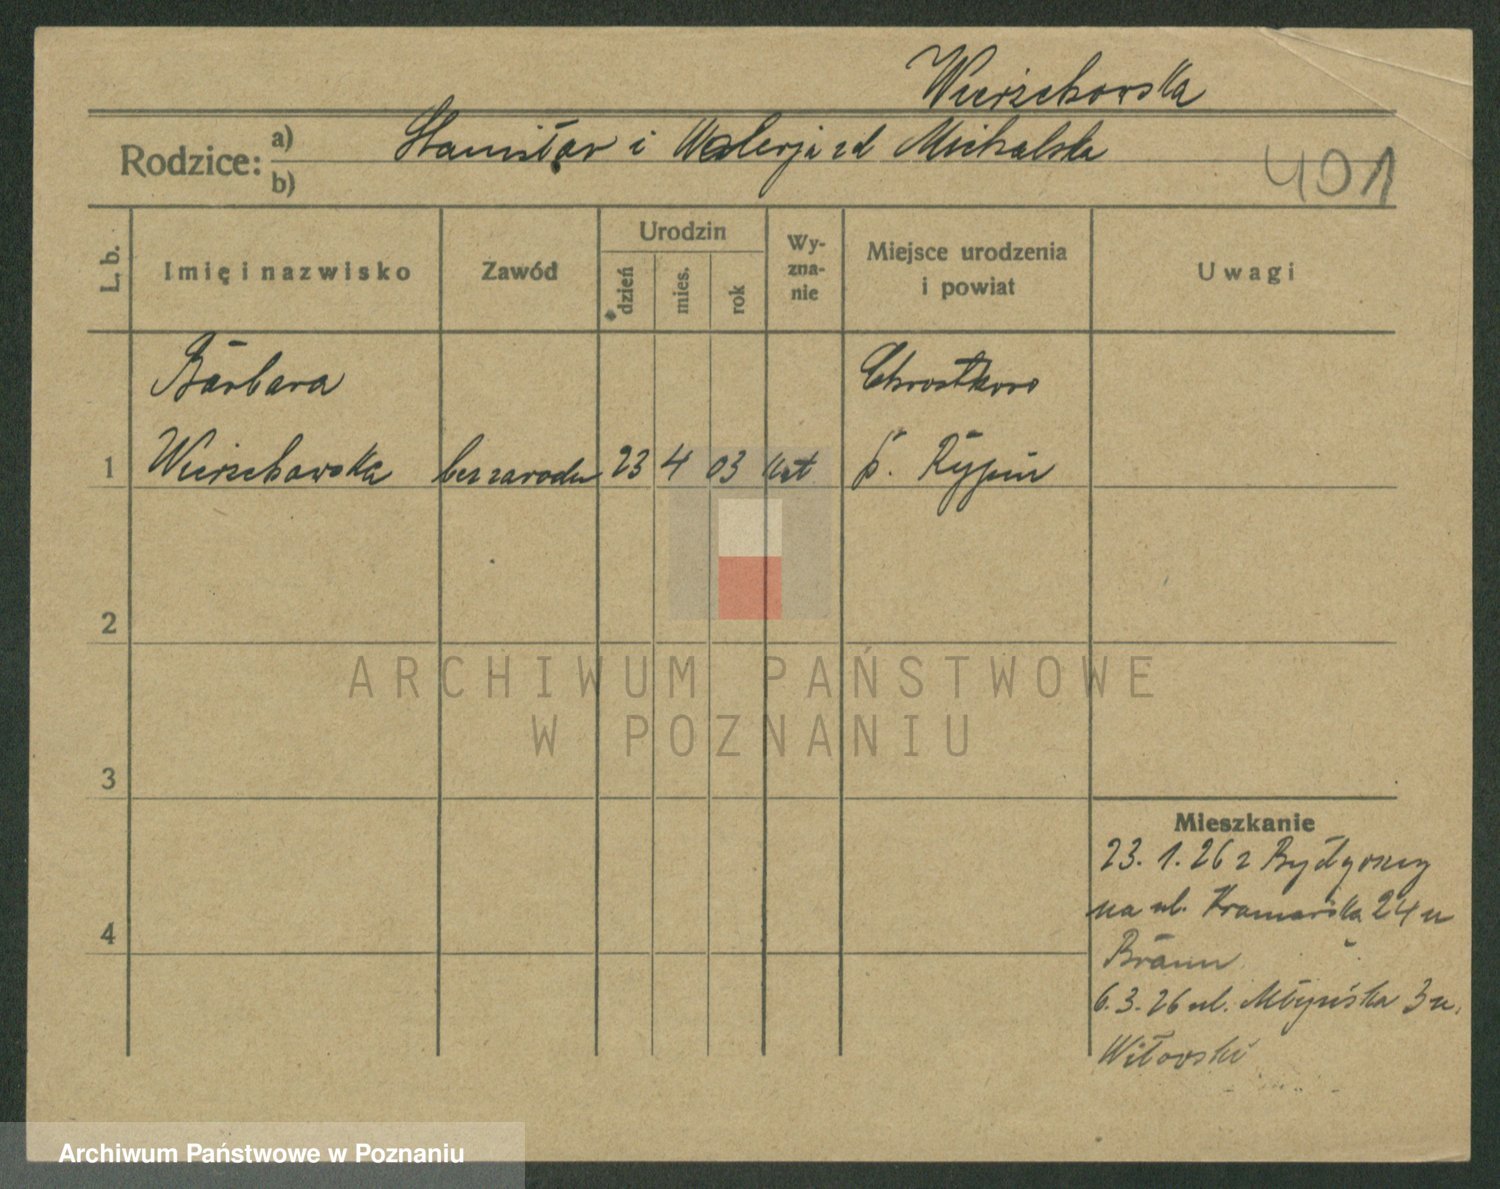 Wierzchowska
Rodzice: a) b) Stanisław i Walerja z d Michalska
401
L. b.
Imię i nazwisko
Zawód
Urodzin
dzień
mies.
rok
Wy-
zna-
nie
Miejsce urodzenia
i powiat
Uwagi
Barbara
Chrostkowo
1 Wierzchowska bez zawodu 23 4 03 kat p. Rypin
2
ARCHIWUM PAŃSTWOWE
W POZNANIU
3
Mieszkanie
23. 1. 26 z Bydgoszczy
na ul. Kramarska 24 u
4
Braun
6. 3. 26 ul. Młyńska 3 u.
Witowski
Archiwum Państwowe w Poznaniu